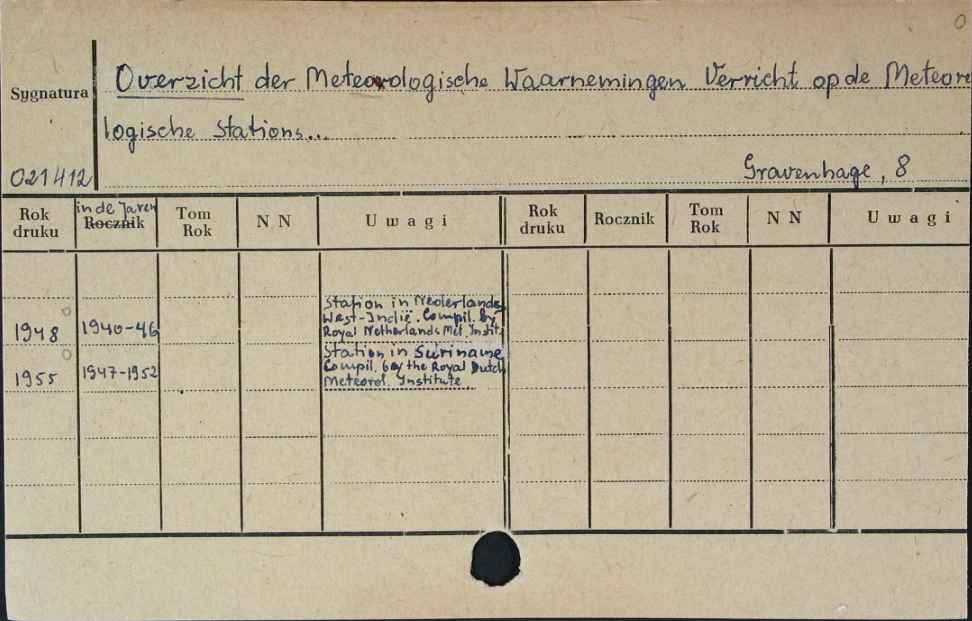 Overzicht der Meteorologische Waarnemingen Verricht op de Meteoro
Sygnatura
logische Stations...
021412
Gravenhage, 8
Rok druku
in de Jaren
Rocznik
Tom Rok
N N
Uwagi
Rok druku
Rocznik
Tom Rok
N N
Uwagi
1948
1940-46
Station in Nederlands
West-Indië. Compil. by
Royal Netherlands Met. Instit.
1955
1947-1952
Station in Suriname
Compil. by the Royal Dutch
Meteorol. Institute